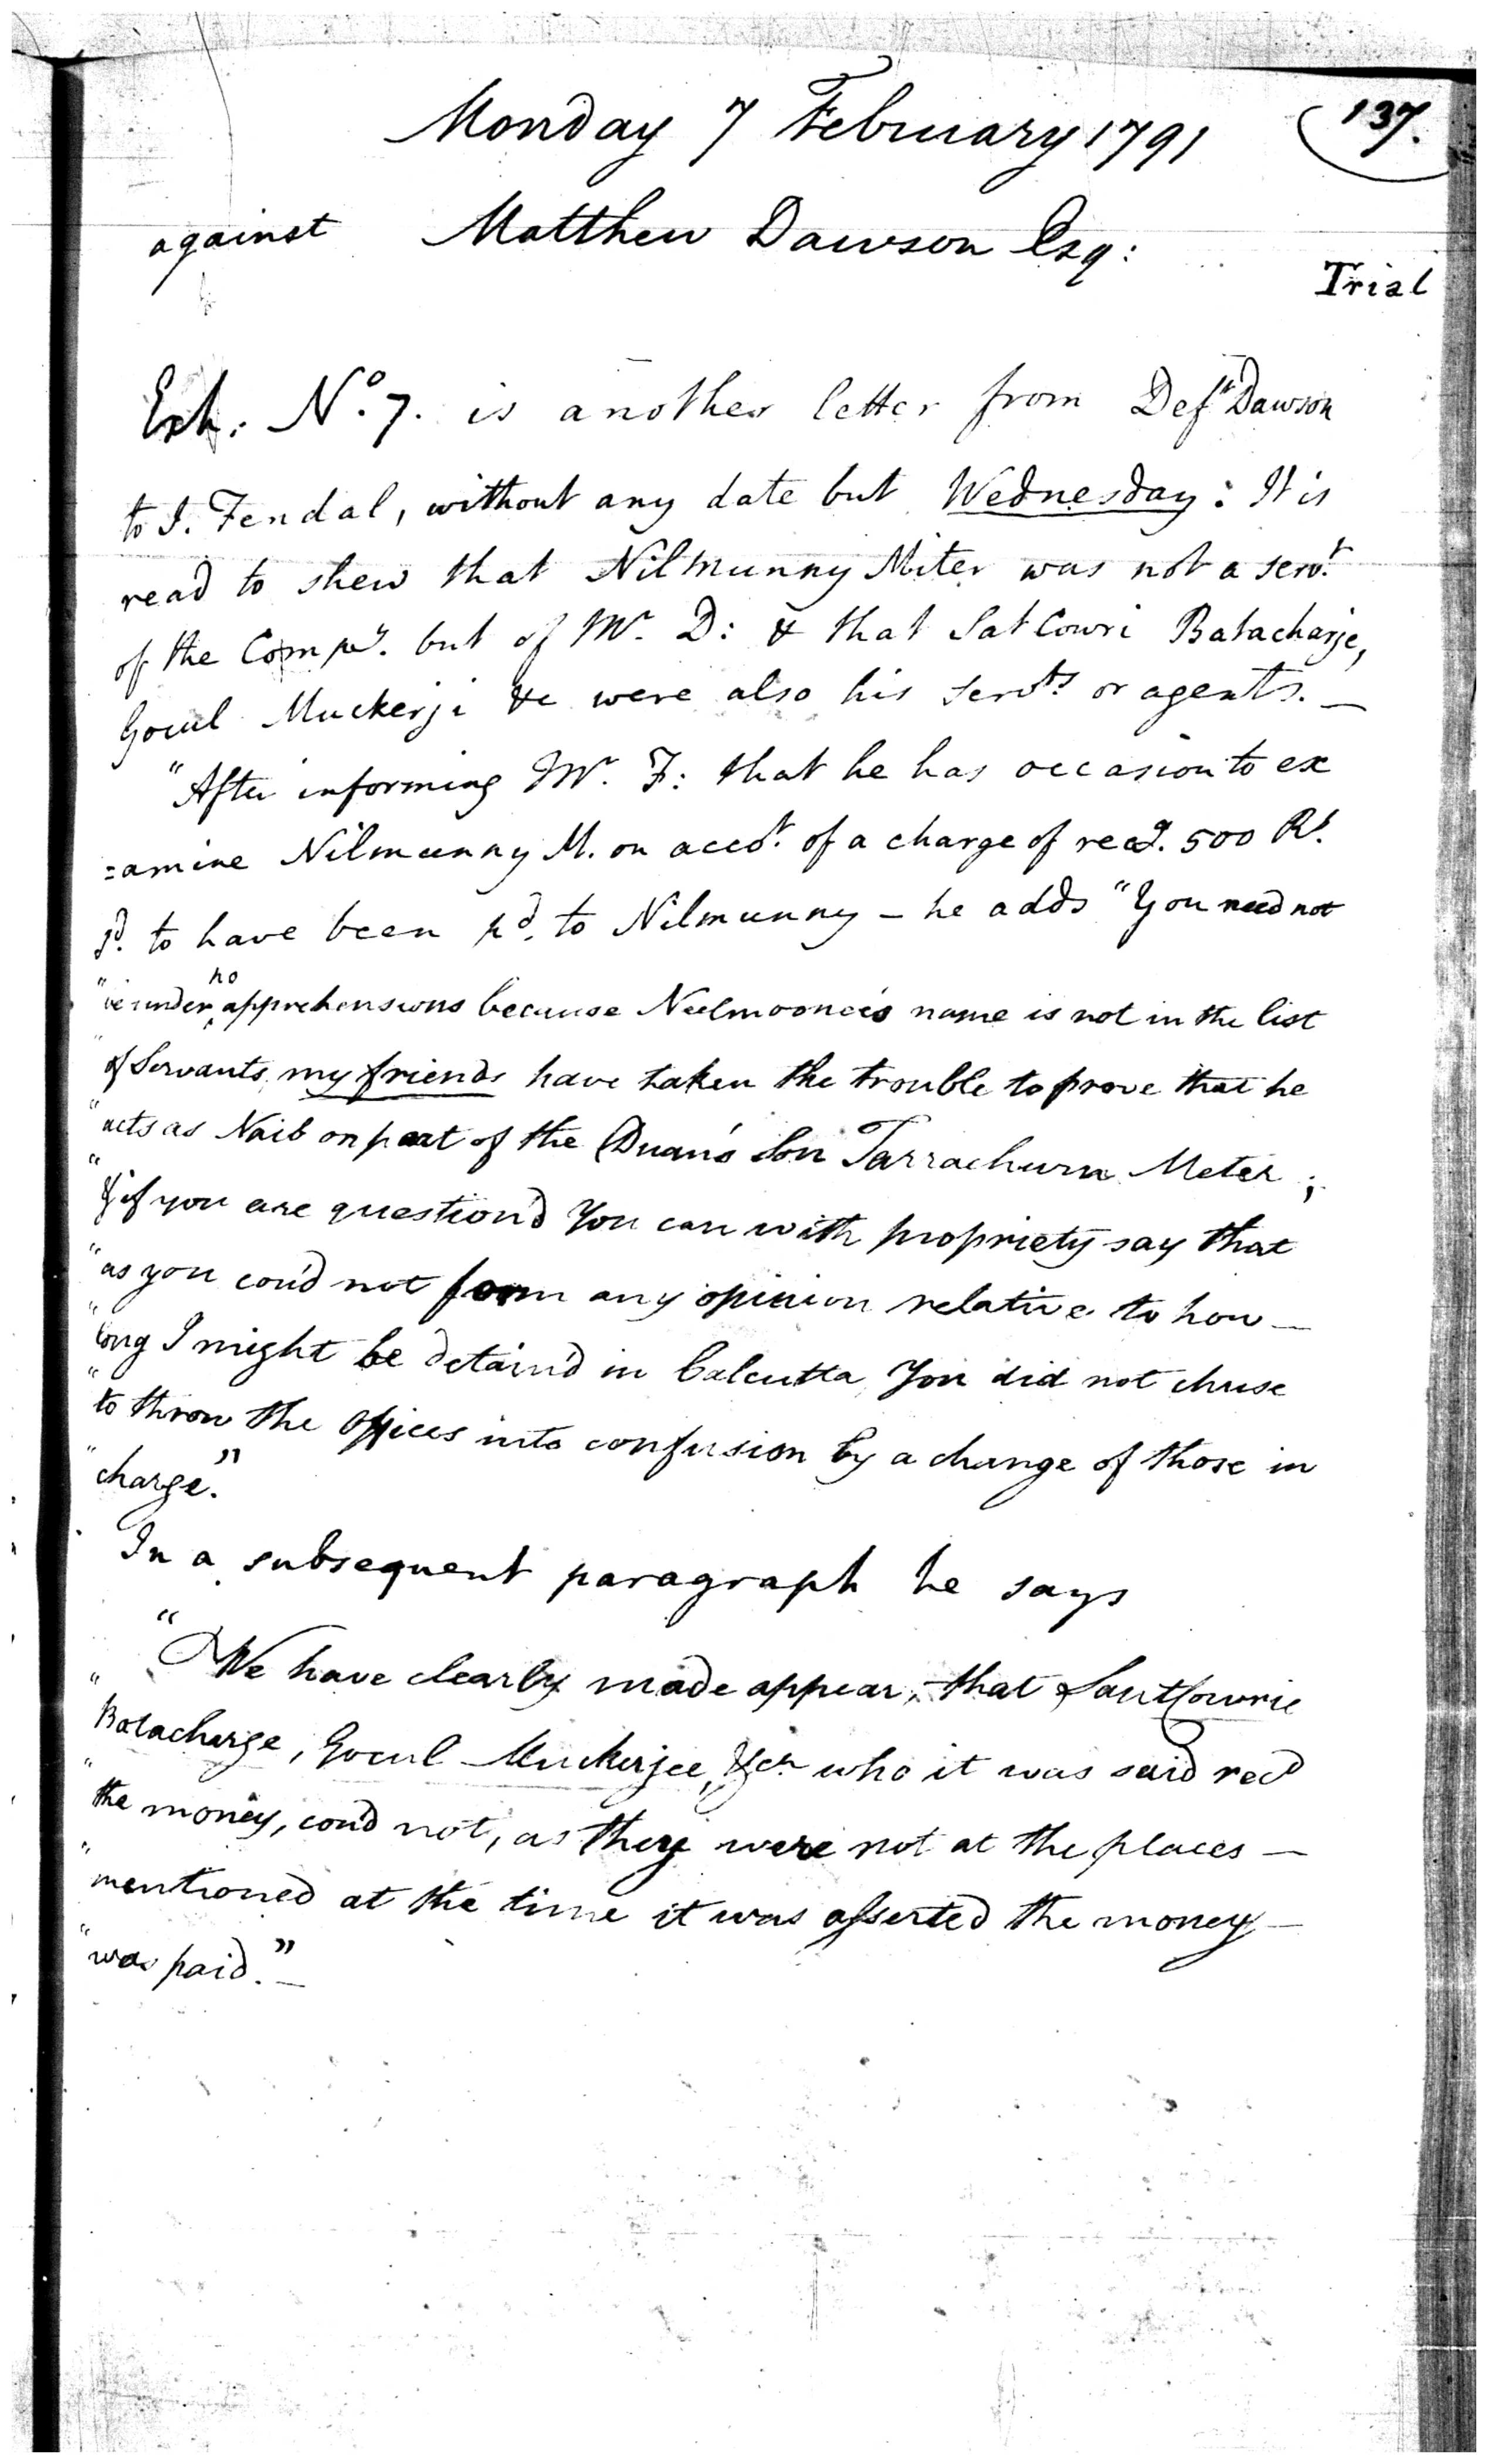 Monday 7 February 1791
137.
against Matthew Dawson Esq:
Trial
Exh. No. 7. is another letter from Deft Dawson
to I. Fendal, without any date but Wednesday: It is
read to shew that Nilmunny Miter was not a servt.
of the Compy. but of Mr. D: & that Sat Cowri Batacharje,
Gocul Muckerji &c were also his servts or agents. —
"After informing Mr. F: that he has occasion to ex
=amine Nilmunny M. on accot. of a charge of recg. 500 Rs.
sd. to have been pd. to Nilmunny – he adds "You need not
"be under no apprehensions because Neelmoonee's name is not in the list
"of Servants, my friends have taken the trouble to prove that he
"acts as Naib on part of the Duan's Son Tarrachurn Meter;
"& if you are question'd You can with propriety say that
"as you cou'd not form any opinion relative to how —
"long I might be detain'd in Calcutta, You did not chuse
"to throw the Offices into confusion by a change of those in
"charge."
In a subsequent paragraph he says
"We have clearly made appear, that SantCowrie
"Batacharge, Gocul Muckerjee, &ca. who it was said recd
"the money, cou'd not, as they were not at the places —
"mentioned at the time it was asserted the money —
"was paid." —